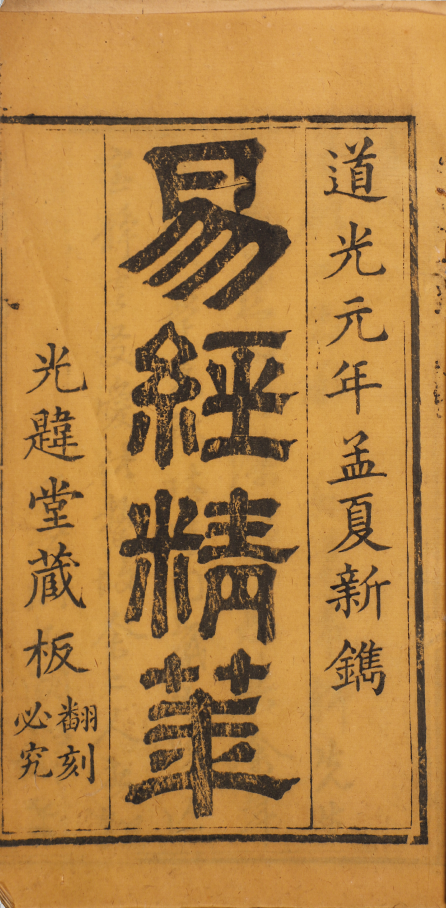 道光元年孟夏新鐫
易經精華
光韙堂藏板
翻刻
必究